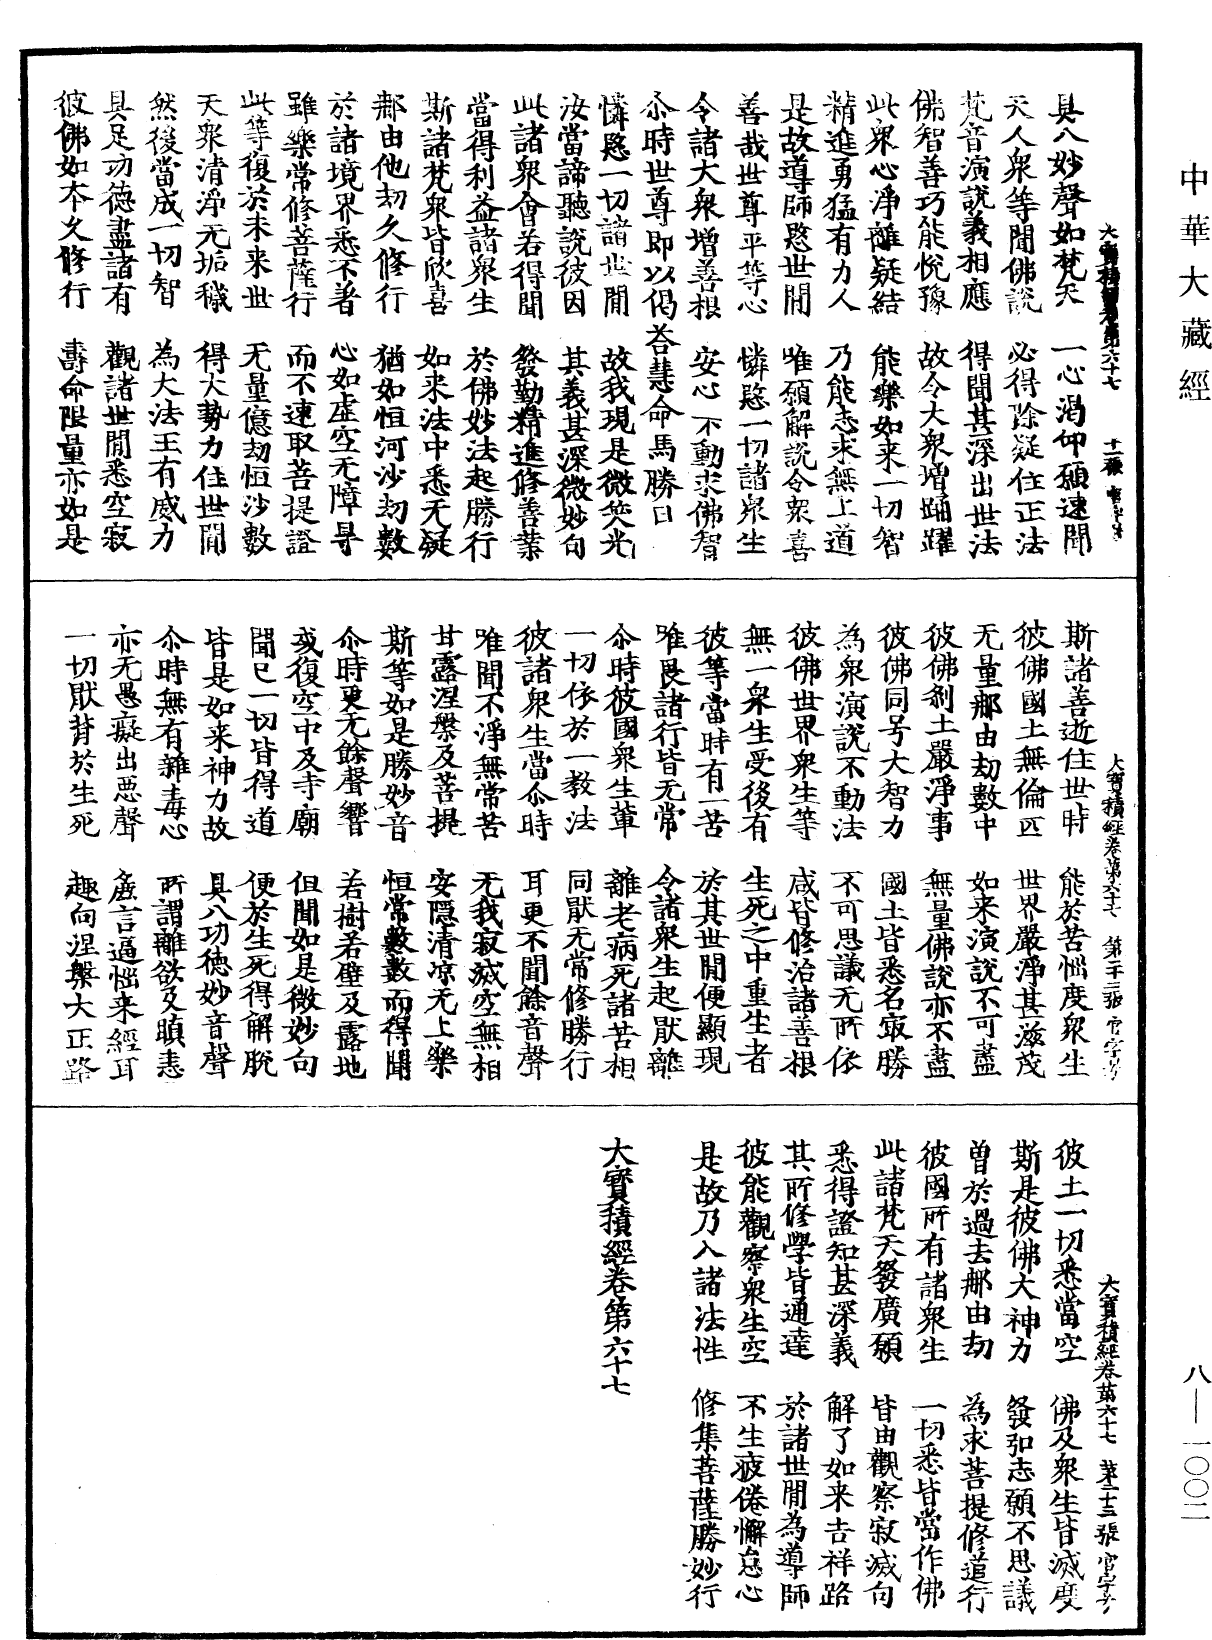 中華大藏經
八—一〇〇二
具八妙聲如梵天 一心渴仰願速聞
天人衆等聞佛說 必得除疑住正法
梵音演說義相應 得聞甚深出世法
佛智善巧能悅豫 故令大衆增踊躍
此衆心淨離疑結 能樂如来一切智
精進勇猛有力人 乃能志求無上道
是故導師愍世間 唯願解說令衆喜
善哉世尊平等心 憐愍一切諸衆生
令諸大衆增善根 安心不動求佛智
尒時世尊即以偈荅慧命馬勝曰
憐愍一切諸世間 故我現是微笑光
汝當諦聽說彼因 其義甚深微妙句
此諸衆會若得聞 發勤精進修善業
當得利益諸衆生 於佛妙法起勝行
斯諸梵衆皆欣喜 如来法中悉无疑
那由他劫久修行 猶如恒河沙劫數
於諸境界悉不著 心如虛空无障㝵
雖樂常修菩薩行 而不速取菩提證
此等復於未来世 无量億劫恒沙數
天衆清淨无垢穢 得大勢力住世間
然後當成一切智 為大法王有威力
具足功德盡諸有 觀諸世間悉空寂
彼佛如夲久修行 壽命限量亦如是
大寶積經卷第六十七 第二十二張 官字号
斯諸善逝住世時 能於苦惱度衆生
彼佛國土無倫匹 世界嚴淨甚滋茂
无量那由劫數中 如来演說不可盡
彼佛剎土嚴淨事 無量佛說亦不盡
彼佛同号大智力 國土皆悉名寂勝
為衆演說不動法 不可思議无所依
彼佛世界衆生等 咸皆修治諸善根
無一衆生受後有 生死之中重生者
彼等當時有一苦 於其世間便顯現
唯畏諸行皆无常 令諸衆生起猒離
尒時彼國衆生輩 離老病死諸苦相
一切依於一教法 同猒无常修勝行
彼諸衆生當尒時 耳更不聞餘音聲
唯聞不淨無常苦 无我寂滅空無相
甘露涅槃及菩提 安隱清凉无上樂
斯等如是勝妙音 恒常數數而得聞
尒時更无餘聲響 若樹若壁及露地
或復空中及寺廟 但聞如是微妙句
聞已一切皆得道 便於生死得解脫
皆是如来神力故 具八功德妙音聲
尒時無有雜毒心 所謂離欲及瞋恚
亦无愚癡出惡聲 麁言逼惱来經耳
一切猒背於生死 趣向涅槃大正路
大寶積經卷第六十七 第二十三張 官字号
彼土一切悉當空 佛及衆生皆滅度
斯是彼佛大神力 發弘志願不思議
曽於過去那由劫 為求菩提修道行
彼國所有諸衆生 一切悉皆當作佛
此諸梵天發廣願 皆由觀察寂滅句
悉得證知甚深義 解了如来吉祥路
其所修學皆通達 於諸世間為導師
彼能觀察衆生空 不生疲倦懈怠心
是故乃入諸法性 修集菩薩勝妙行
大寶積經卷第六十七